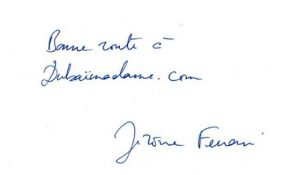 Bonne route à
Dubaimadame.com
Jérôme Ferrari